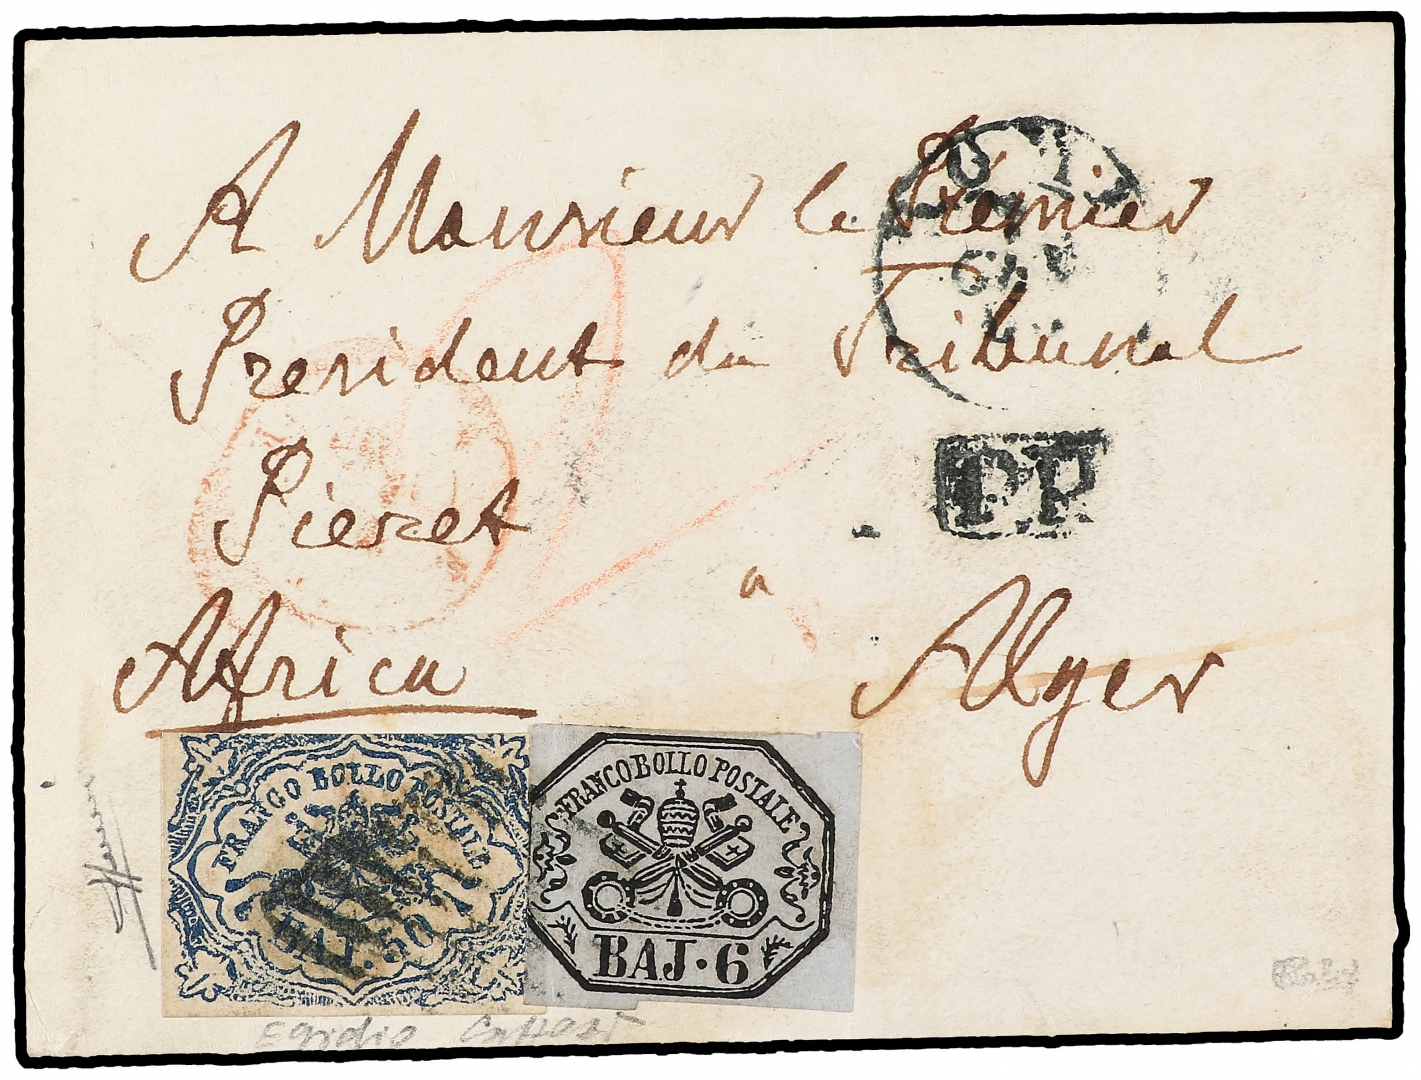 A Monsieur le Premier
President du Tribunal
Pieret
a
Africa Alger
P.P.
FRANCO BOLLO POSTALE
BAJ. 50
FRANCO BOLLO POSTALE
BAJ. 6
Egidio